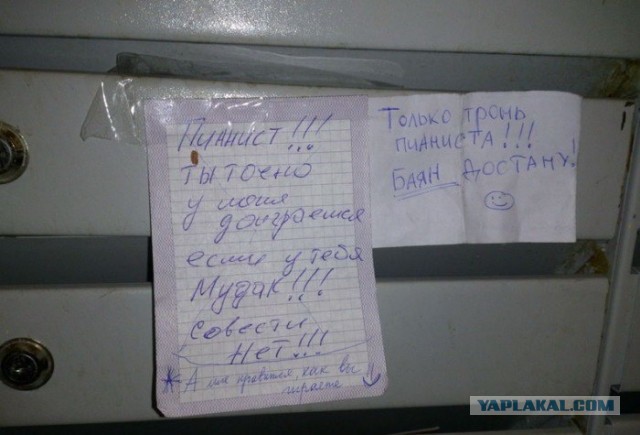 Пианист!!!
ты точно
у меня
доиграешся
если у тебя
Мудак!!!
Совести
Нет!!!
А мне нравится, как вы
играете
Только тронь
пианиста!!!
Баян достану!
YAPLAKAL.COM